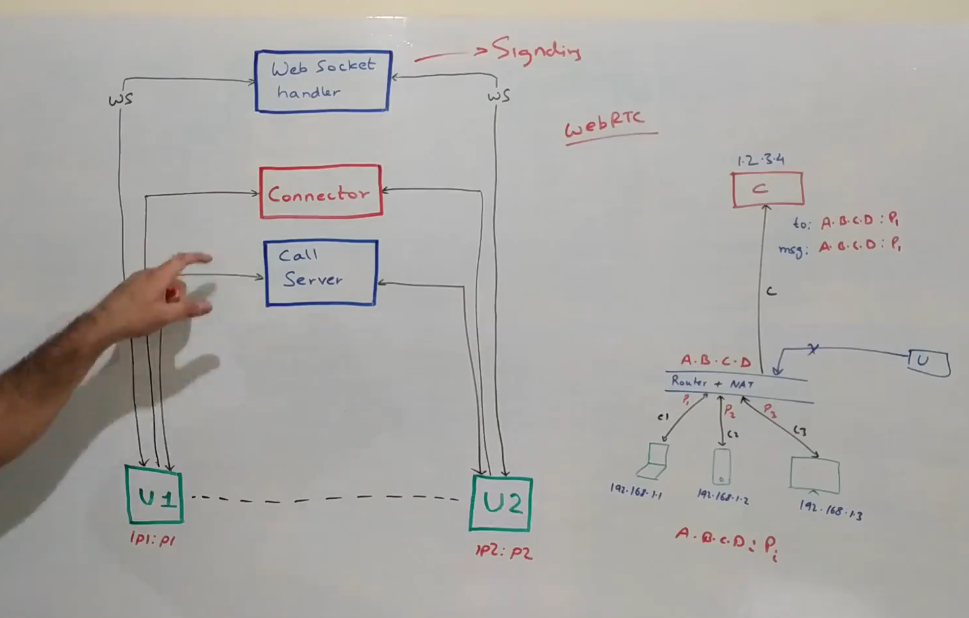 Web Socket
handler
Signaling
WS
WS
WebRTC
Connector
Call
Server
U1
U2
IP1:P1
IP2:P2
1.2.3.4
C
to: A.B.C.D:P1
msg: A.B.C.D:P1
C
A.B.C.D
Router + NAT
X
U
P1
P2
P3
C1
C2
C3
192.168.1.1
192.168.1.2
192.168.1.3
A.B.C.D:Pi